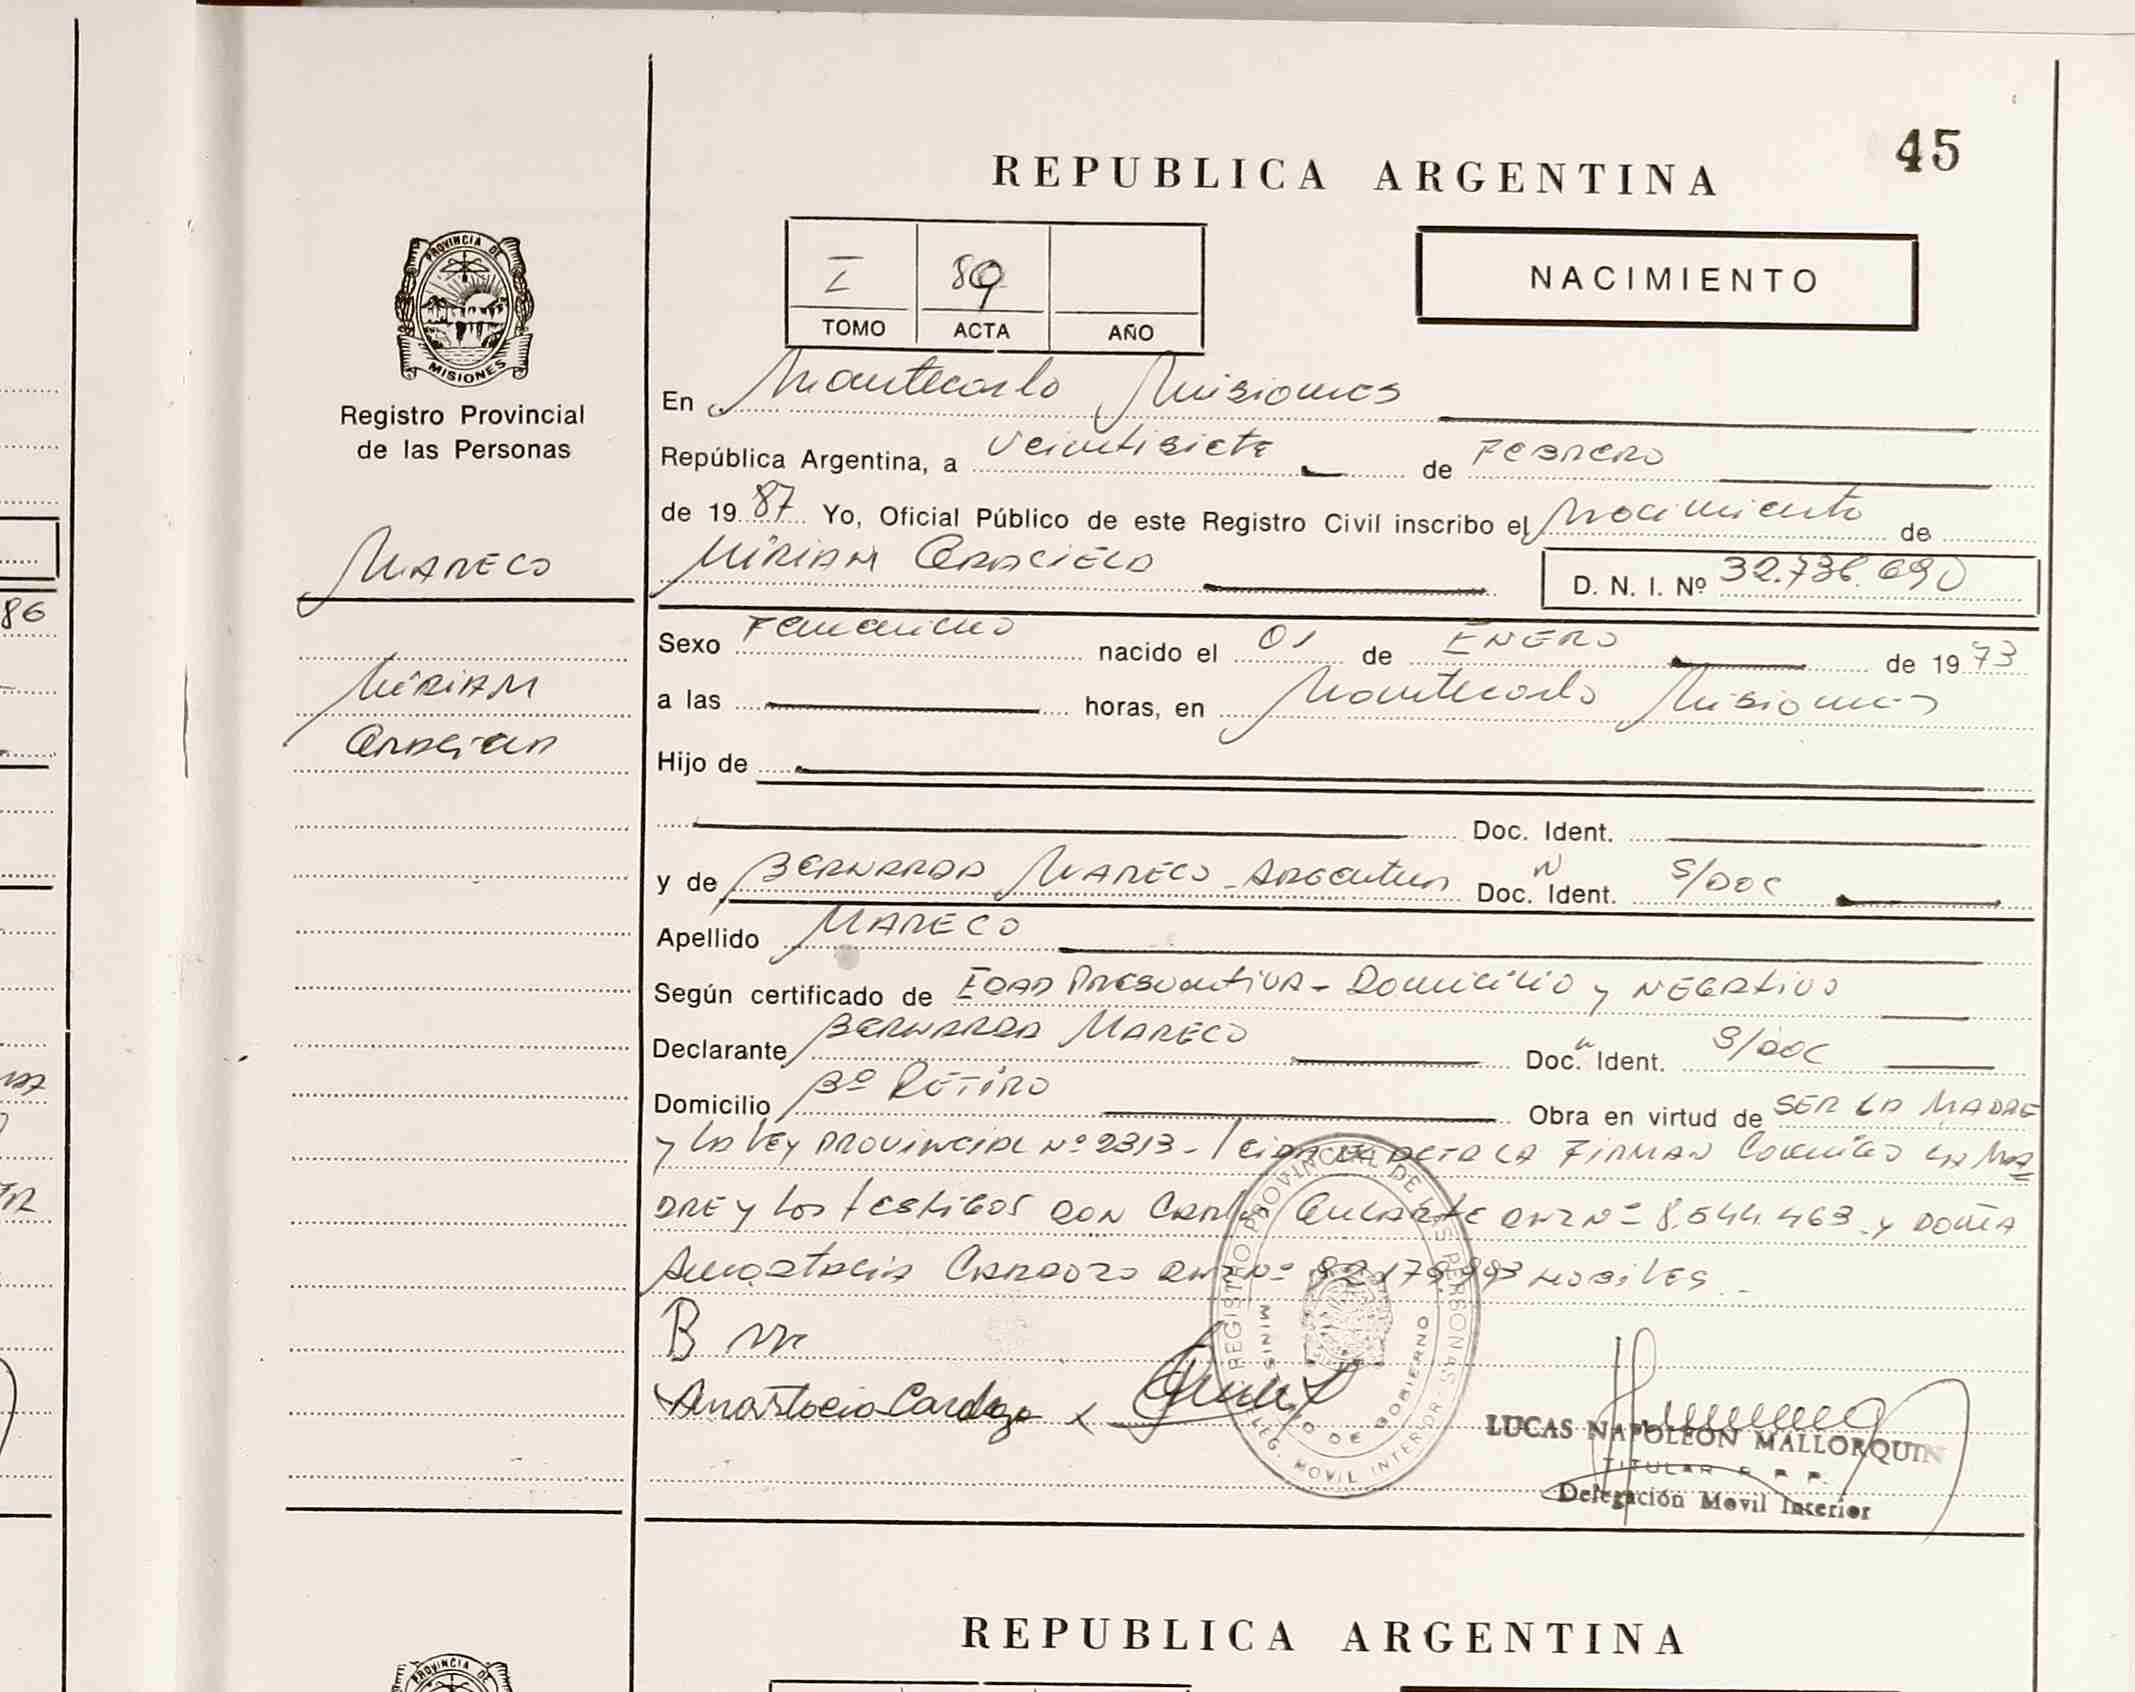 45
REPUBLICA ARGENTINA
I 89
TOMO ACTA AÑO
NACIMIENTO
PROVINCIA DE
MISIONES
Registro Provincial
de las Personas
MARECO
MIRIAM
GRACIELA
En Montecarlo Misiones
República Argentina, a veintisiete de FEBRERO
de 1987 Yo, Oficial Público de este Registro Civil inscribo el Nacimiento de
MIRIAM GRACIELA D. N. I. Nº 32.736.690
Sexo Femenino nacido el 01 de ENERO de 1973
a las horas, en Montecarlo Misiones
Hijo de
Doc. Ident.
y de BERNARDA MARECO - ARGENTINA Doc. Ident. S/DOC
Apellido MARECO
Según certificado de EDAD PRESUNTIVA - Domicilio y NEGATIVO
Declarante BERNARDA MARECO Doc. Ident. S/DOC
Domicilio Bº RETIRO Obra en virtud de SER LA MADRE
y LA LEY PROVINCIAL Nº 2313 - Leida el ACTA LA FIRMAN Conmigo LA MA
DRE y Los testigos DON DNI Nº 8.544.463 y DOÑA
Anastacia CARDOZO DNI Nº HABILES
B m
Anastacia Cardozo x
REGISTRO PROVINCIAL DE LAS PERSONAS
MINISTERIO DE GOBIERNO
DELEG. MOVIL INTERIOR
LUCAS NAPOLEON MALLORQUIN
TITULAR R. P. P.
Delegación Movil Interior
86
REPUBLICA ARGENTINA
PROVINCIA DE